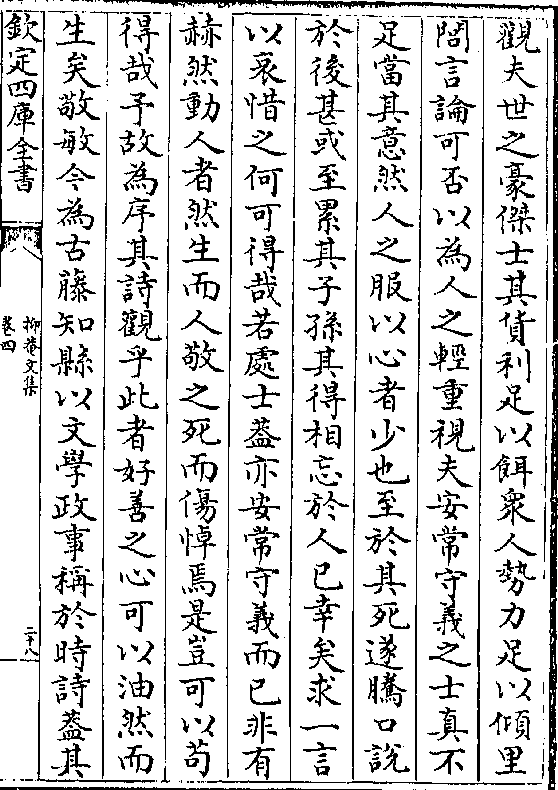 觀夫世之豪傑士其貨利足以餌衆人勢力足以傾里
閭言論可否以為人之輕重視夫安常守義之士真不
足當其意然人之服以心者少也至於其死遂騰口說
於後甚或至累其子孫其得相忘於人已幸矣求一言
以哀惜之何可得哉若處士葢亦安常守義而已非有
赫然動人者然生而人敬之死而傷悼焉是豈可以苟
得哉予故為序其詩觀乎此者好善之心可以油然而
生矣敬敏今為古藤知縣以文學政事稱於時詩葢其
欽定四庫全書
抑菴文集
卷四
二十八